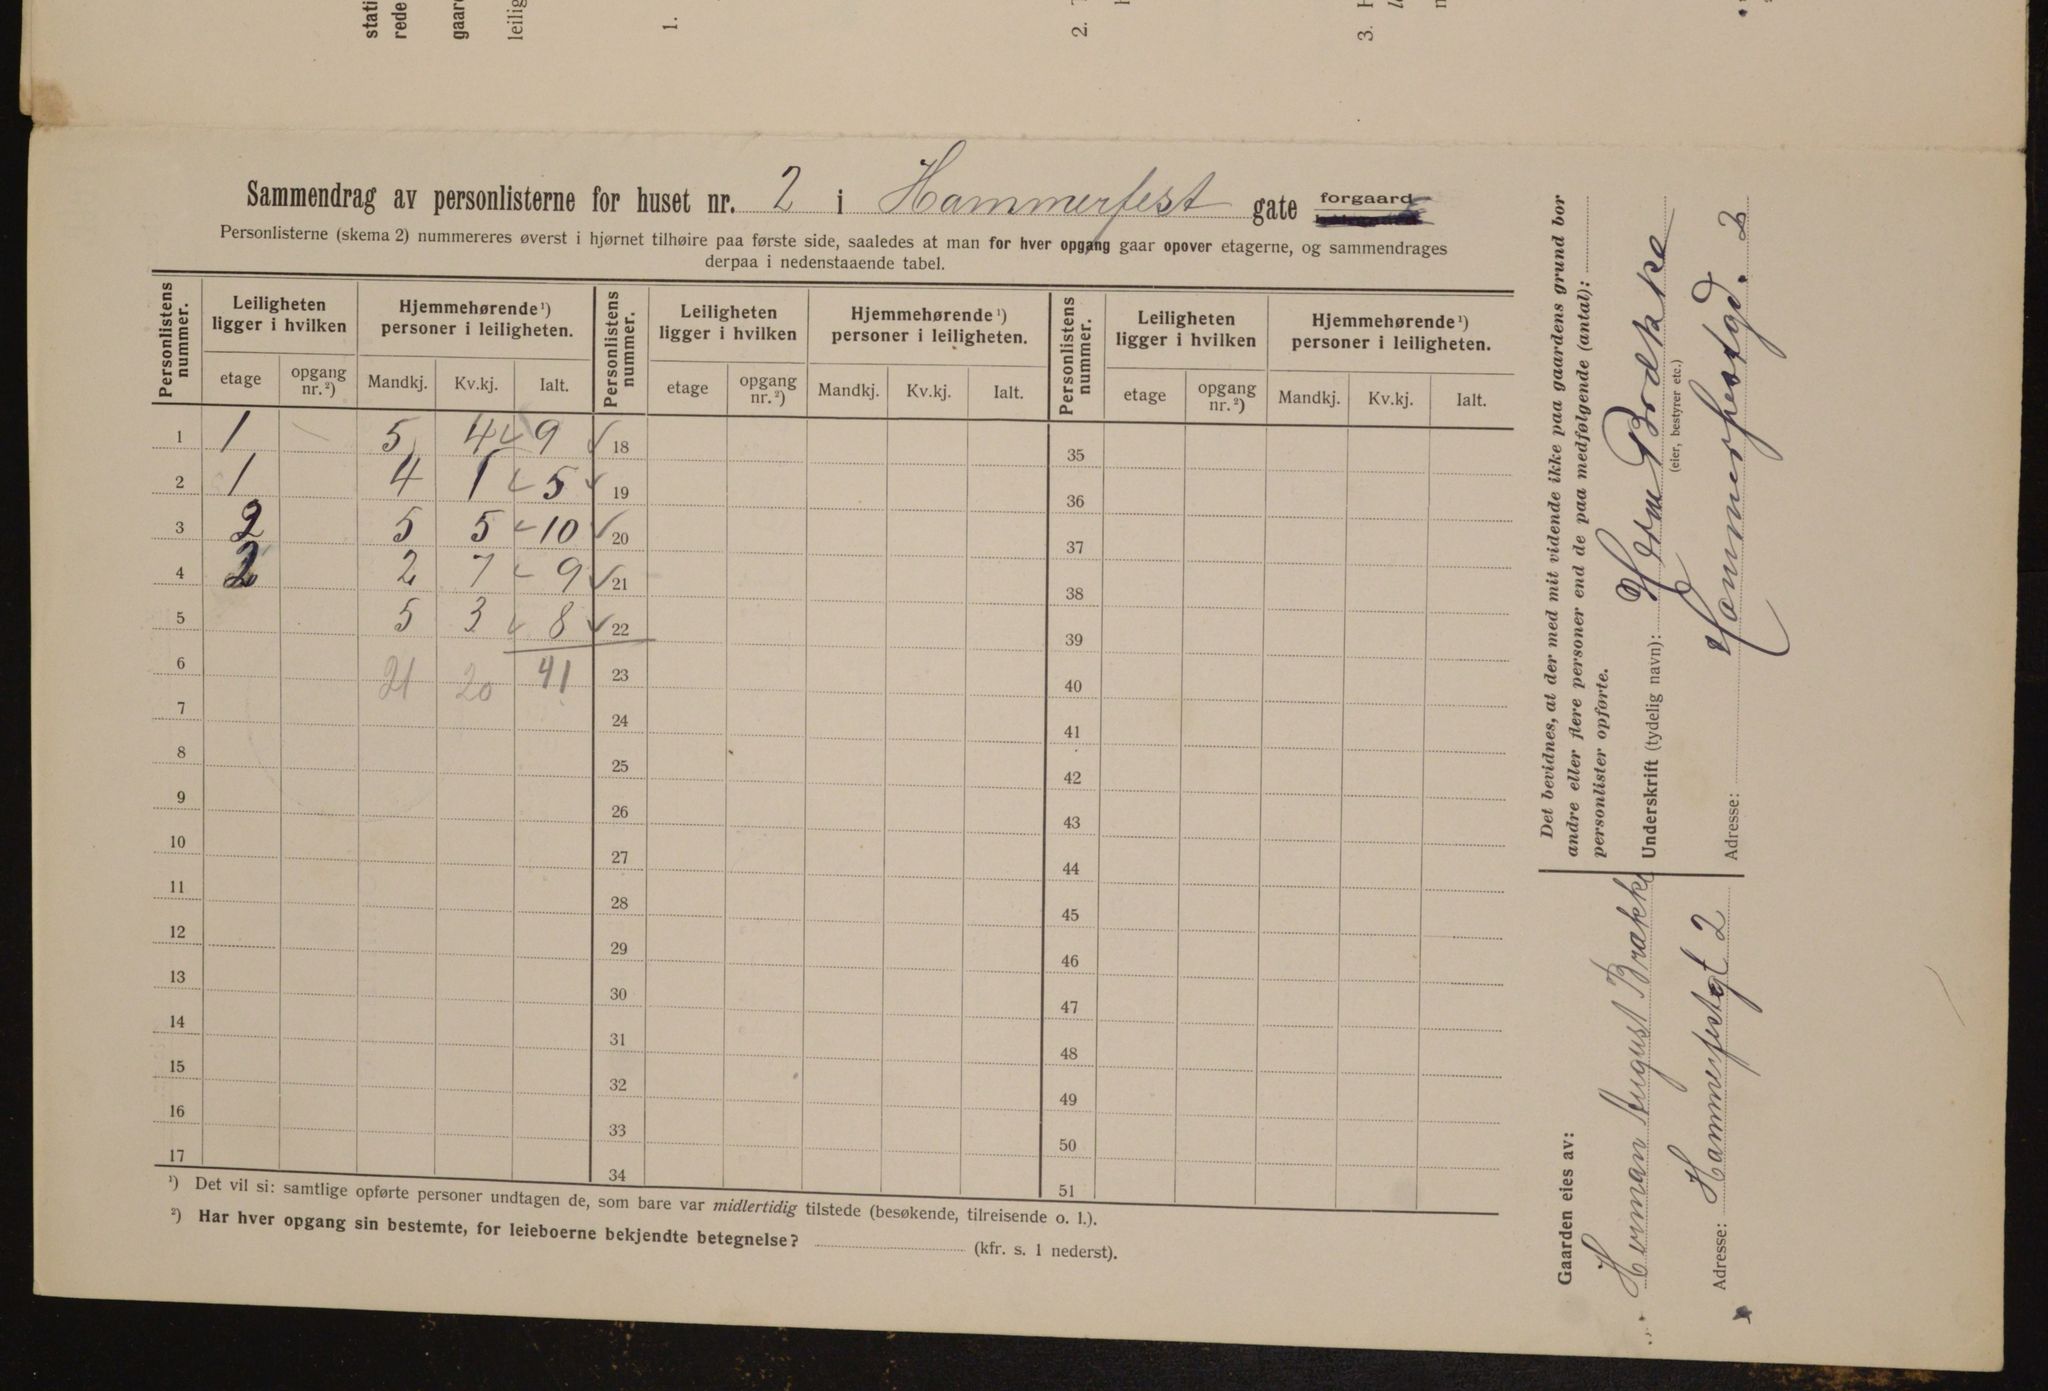 stati
rede
gaard
leilig
1.
2.
3.
Sammendrag av personlisterne for huset nr. 2 i Hammerfest gate forgaard
Personlisterne (skema 2) nummereres øverst i hjørnet tilhøire paa første side, saaledes at man for hver opgang gaar opover etagerne, og sammendrages
derpaa i nedenstaaende tabel.
Personlistens nummer. Leiligheten ligger i hvilken Hjemmehørende¹) personer i leiligheten. Personlistens nummer. Leiligheten ligger i hvilken Hjemmehørende¹) personer i leiligheten. Personlistens nummer. Leiligheten ligger i hvilken Hjemmehørende¹) personer i leiligheten.
etage opgang nr.²) Mandkj. Kv.kj. Ialt. etage opgang nr.²) Mandkj. Kv.kj. Ialt. etage opgang nr.²) Mandkj. Kv.kj. Ialt.
1 1 – 5 4 9 18 35
2 1 4 1 5 19 36
3 2 5 5 10 20 37
4 2 2 7 9 21 38
5 5 3 8 22 39
6 21 20 41 23 40
7 24 41
8 25 42
9 26 43
10 27 44
11 28 45
12 29 46
13 30 47
14 31 48
15 32 49
16 33 50
17 34 51
¹) Det vil si: samtlige opførte personer undtagen de, som bare var midlertidig tilstede (besøkende, tilreisende o. l.).
²) Har hver opgang sin bestemte, for leieboerne bekjendte betegnelse? (kfr. s. 1 nederst).
Det bevidnes, at der med mit vidende ikke paa gaardens grund bor
andre eller flere personer end de paa medfølgende (antal):
personlister opførte.
Underskrift (tydelig navn): Herm Brakke
(eier, bestyrer etc.)
Adresse: Hammerfestgd. 2
Gaarden eies av:
Herman August Brakke
Adresse: Hammerfestgt 2